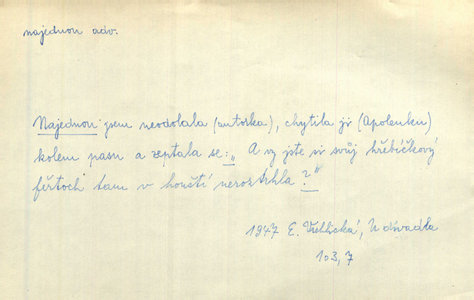 najednou adv.
Najednou jsem neodolala (autorka), chytila ji (Apolenku)
kolem pasu a zeptala se: „A vy jste si svůj hřebíčkový
fěrtoch tam v houští neroztrhla?“
1947 E. Vrchlická, U divadla
103,7